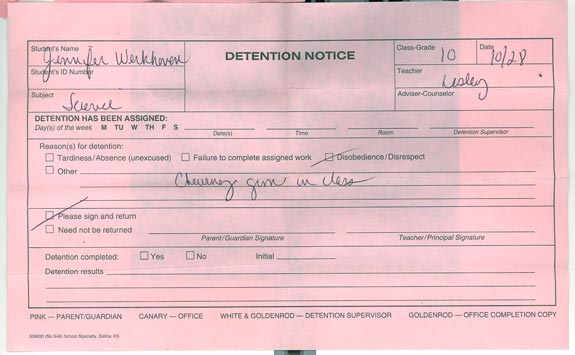 Student's Name Jennifer Werkhoven
DETENTION NOTICE
Class-Grade 10 Date 10/28
Student's ID Number
Teacher Lesley
Subject Science
Adviser-Counselor
DETENTION HAS BEEN ASSIGNED:
Day(s) of the week M TU W TH F S
Date(s) Time Room Detention Supervisor
Reason(s) for detention:
Tardiness/Absence (unexcused) Failure to complete assigned work Disobedience/Disrespect
Other
Chewing gum in class
Please sign and return
Need not be returned
Parent/Guardian Signature Teacher/Principal Signature
Detention completed: Yes No Initial
Detention results
PINK — PARENT/GUARDIAN CANARY — OFFICE WHITE & GOLDENROD — DETENTION SUPERVISOR GOLDENROD — OFFICE COMPLETION COPY
School Specialty, Salina, KS